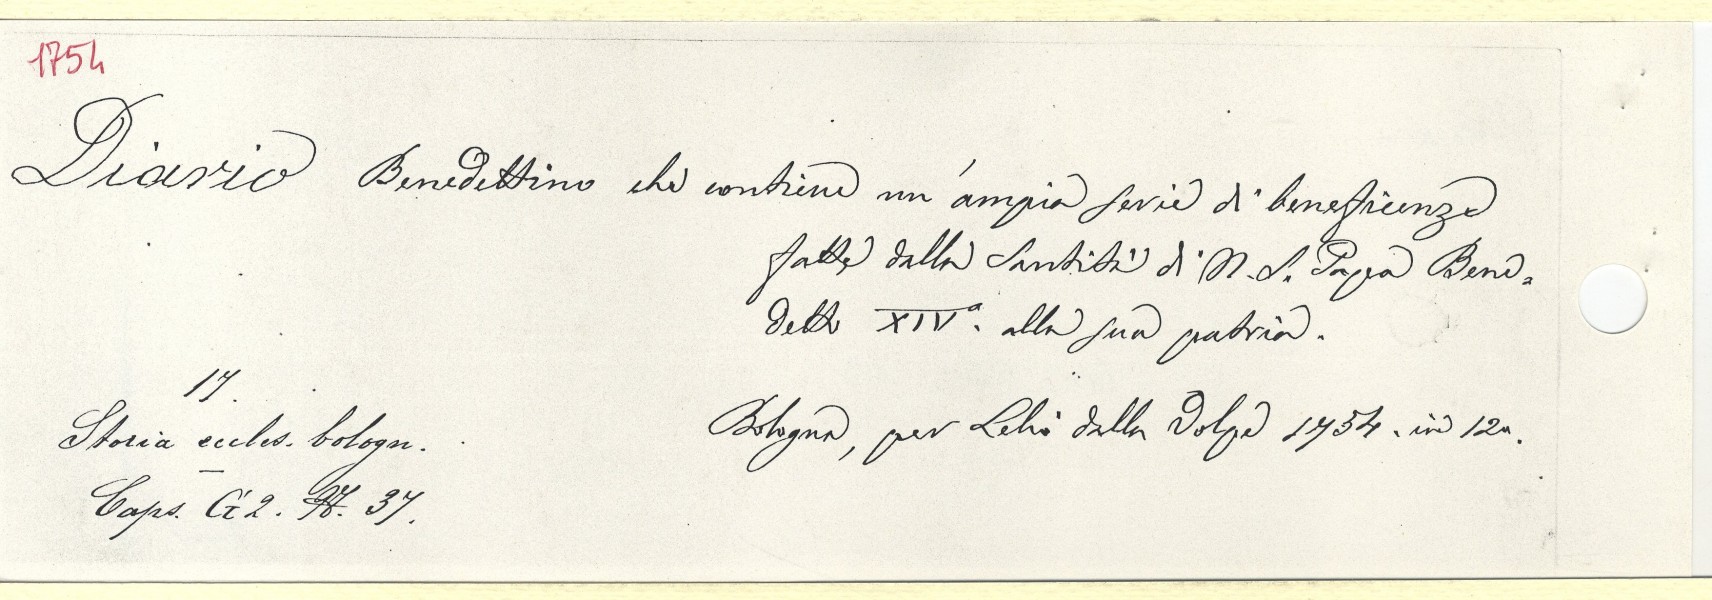 1754
Diario Benedettino che contiene un'ampia serie di beneficenze
fatte dalla Santità di N. S. Papa Bene-
detto XIVº. alla sua patria.
17.
Storia eccles. bologn.
Bologna, per Lelio dalla Volpe 1754. in 12º.
Caps. G 2. N. 37.